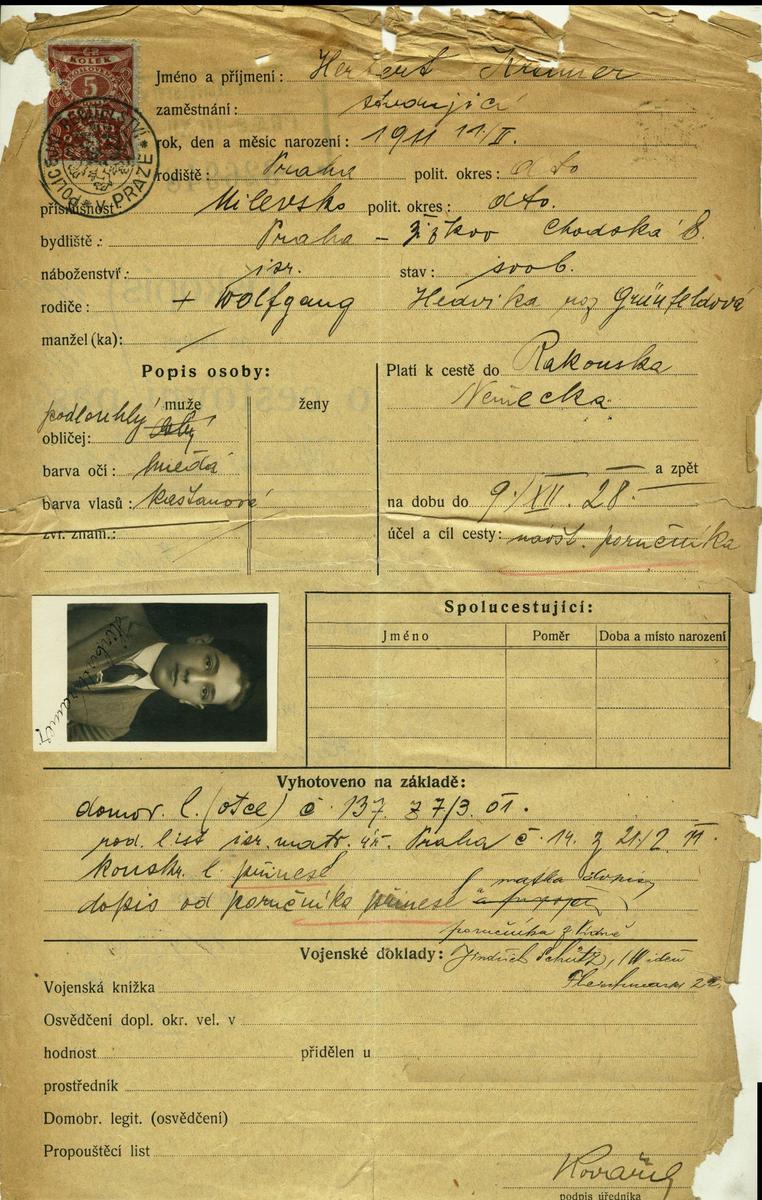 KOLEK
5
POLIC. ŘEDITELSTVÍ * V PRAZE *
Jméno a příjmení : Herbert Kramer
zaměstnání :
rok, den a měsíc narození : 1911 11/II.
rodiště : Praha polit. okres : dto
příslušnost Milevsko polit. okres : dto.
bydliště : Praha – Žižkov Chodská 8.
náboženství : isr. stav : svob.
rodiče : + Wolfgang Hedvika roz Grünfeldová
manžel (ka): /
Popis osoby:
Platí k cestě do Rakouska
Německa
podlouhlý muže ženy
obličej:
barva očí : hnědá
a zpět
barva vlasů : kaštanová
na dobu do 9./XII. 28.
zvl. znam. :
účel a cíl cesty: návšt. poručníka
Spolucestující:
Jméno Poměr Doba a místo narození
Vyhotoveno na základě:
domov. l. (otce) č. 137 z 7/3 01.
rod. list isr. matr. Praha č. 14. z 21/2 11.
konskr. l. přinesl
matka
dopis od poručníka přinesl
poručníka z Vídně
Vojenské doklady: Jindřich Schütz, I Widen
Vojenská knížka
Osvědčení dopl. okr. vel. v
hodnost přidělen u
prostředník
Domobr. legit. (osvědčení)
Propouštěcí list
Kovařík
podpis úředníka